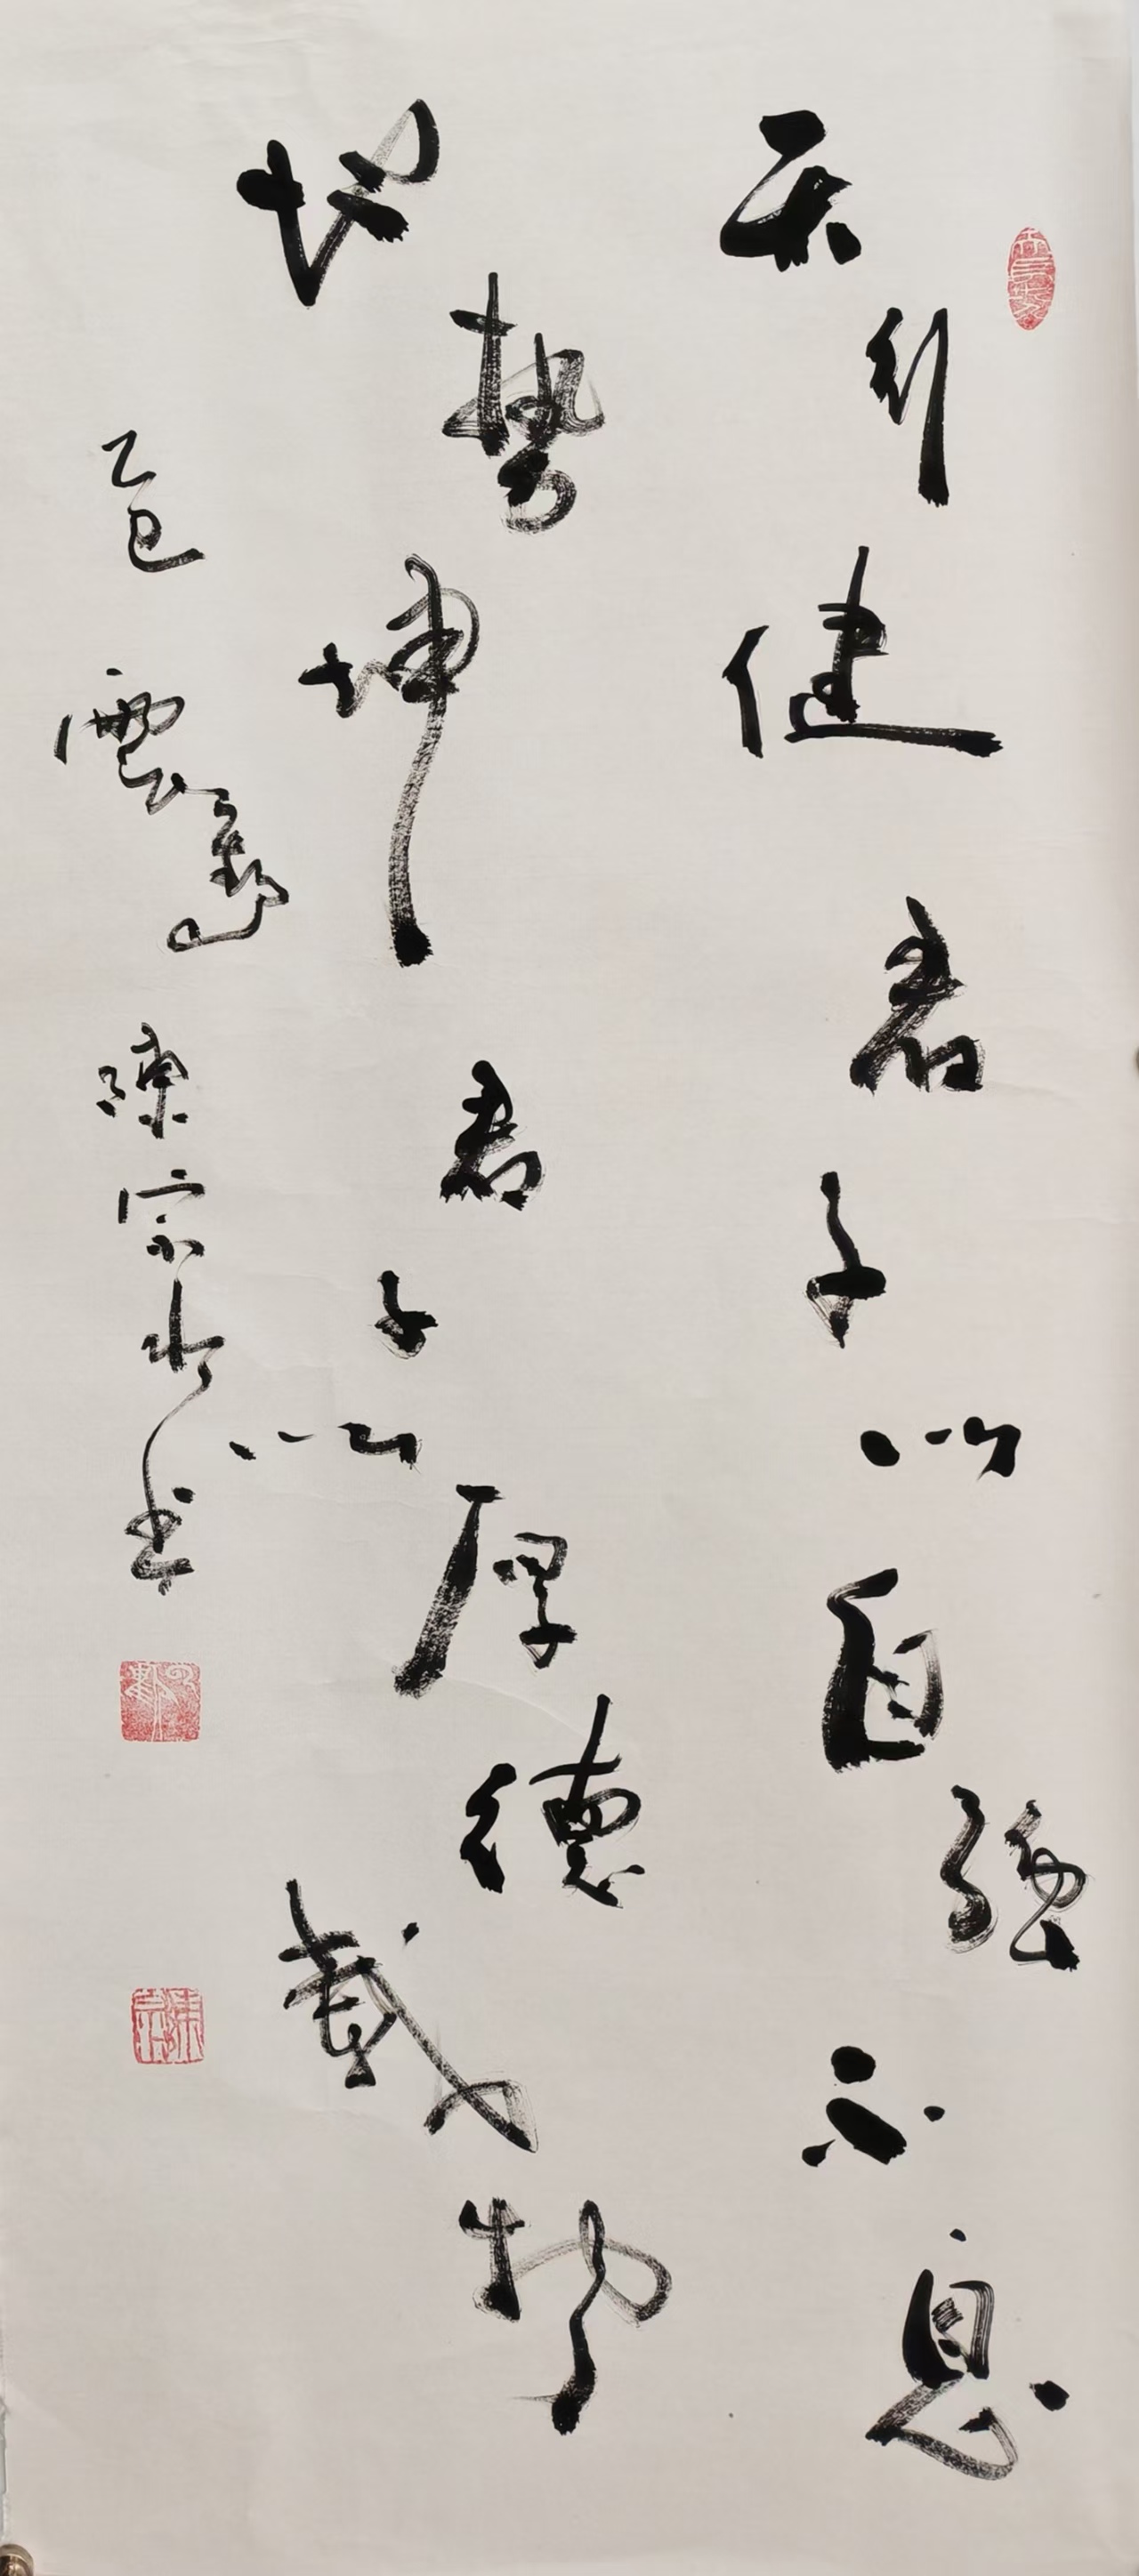 天行健君子以自强不息
地势坤君子以厚德载物
乙巳 云 陈宗水书